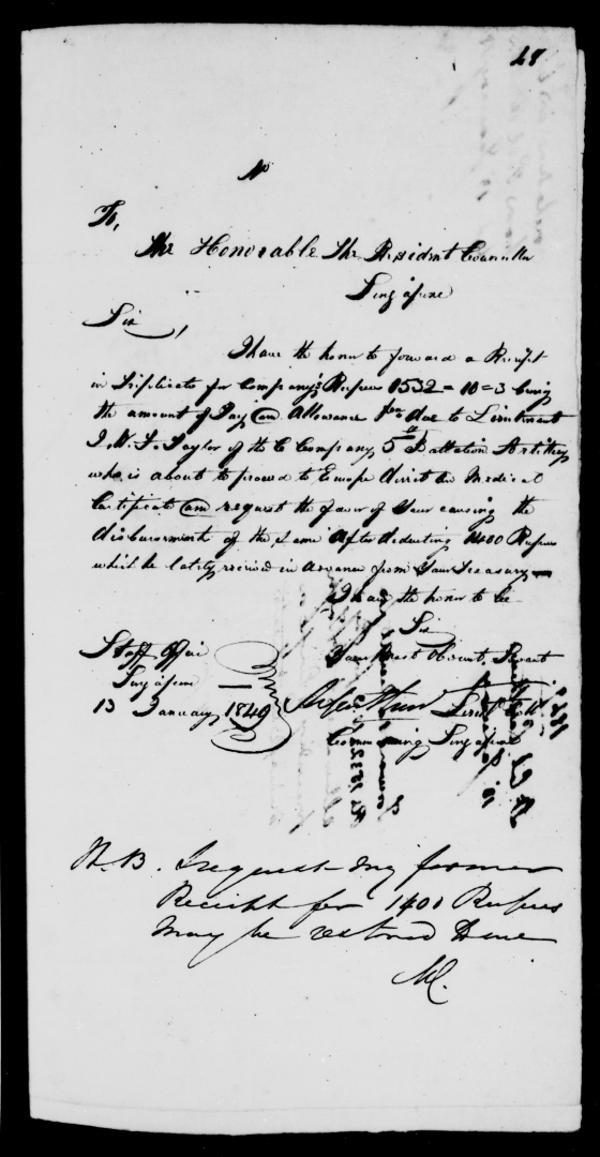 48
No
To,
The Honorable The Resident Councillor
Singapore
Sir,
I have the honor to forward a Receipt
in Triplicate for Company's Rupees 1532=10=3 being
the amount of Pay and Allowance &ca due to Lieutenant
Taylor of the C Company 5th Battalion Artillery
who is about to proceed to Europe direct on Medical
Certificate and request the favor of Your causing the
disbursement of the same after deducting 1400 Rupees
which he lately received in advance from Your Treasury
I have the honor to be
Sir
Your Most Obedient Servant
Staff Office
Singapore
13 January 1849
Lieut Col
Commanding Singapore
N.B. I request my former
Receipt for 1400 Rupees
may be returned